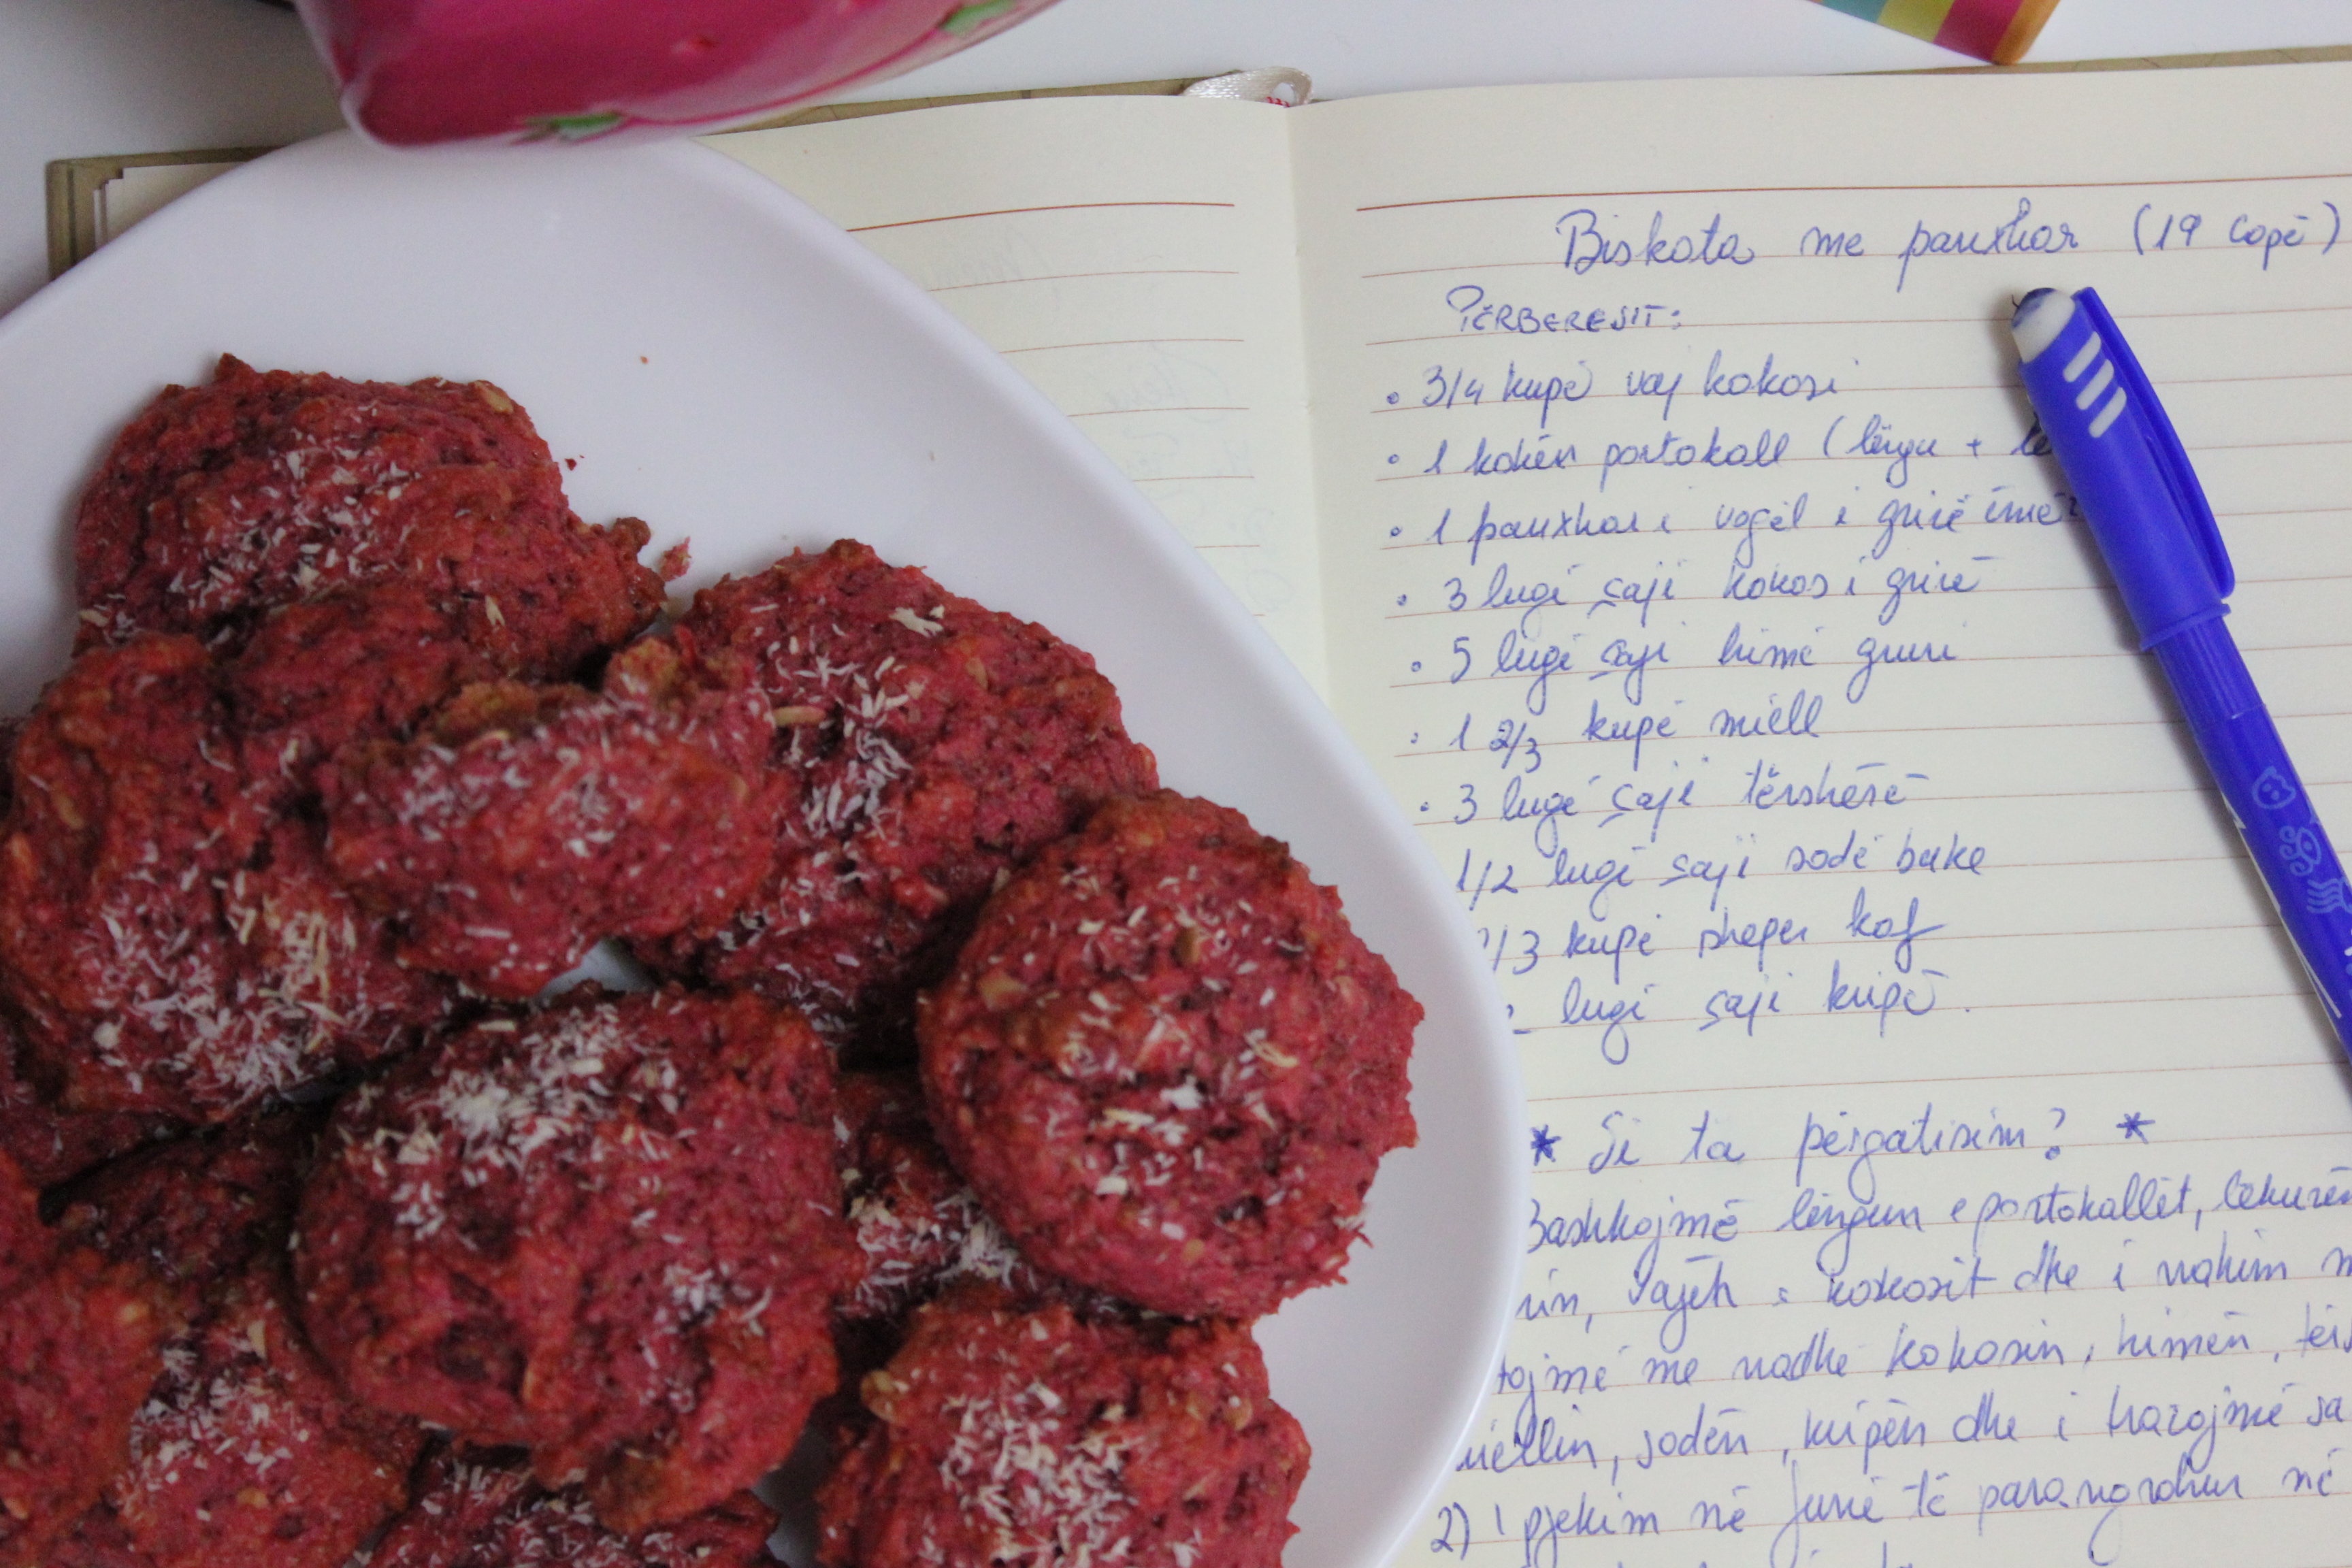 Biskota me panxhar (19 copë)
PËRBERESIT:
• 3/4 kupë vaj kokosi
• 1 kokërr portokall (lëngu +
• 1 panxhar i vogël i grirë imët
• 3 lugë gjelle kokos i grirë
• 5 lugë gjelle krime gruri
• 1 2/3 kupë miell
• 3 lugë gjelle tërshërë
1/2 lugë gjelle sodë buke
/3 kupë sheqer kaf
lugë gjelle kripë.
* Si ta përgatisim? *
Bashkojmë lëngun e portokallët, lëkurën
rin, vajin e kokosit dhe i
tojmë me radhë kokosin, himën,
miellin, sodën, kripën dhe i trazojmë sa
2) I pjekim në furrë të parangrohur në